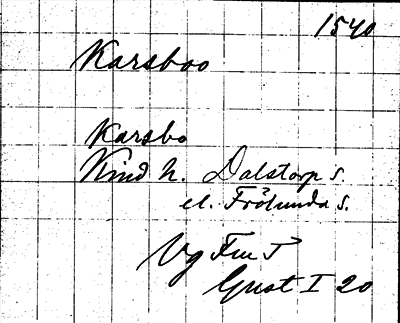 1540
Karsboo
Karsbo
Kind h. Dalstorp s.
el. Frölunda s.
Vg Fur
Gust I 20